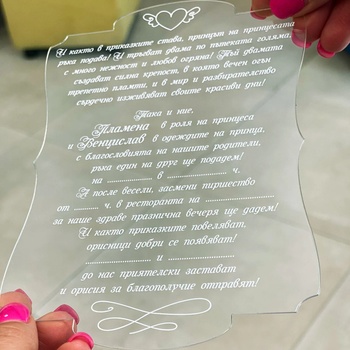 И както в приказките става, принцът на принцесата
ръка подава! И тръгват двама по пътеката голяма,
с много нежност и любов огряна! Тъй двамата
създават силна крепост, в която вечен огън
трепетно пламти, и в мир и разбирателство
сърдечно изживяват своите красиви дни!
Така и ние,
Пламена в роля на принцеса
и Венцислав в одеждите на принца,
с благословията на нашите родители,
ръка един на друг ще подадем!
на .................. в .................. ч.
А после весели, засмени пиршество
от ........ ч. в ресторанта на ..................
за наше здраве празнична вечеря ще дадем!
И както приказките повеляват,
орисници добри се появяват!
.................. и ..................
до нас приятелски застават
и орисия за благополучие отправят!